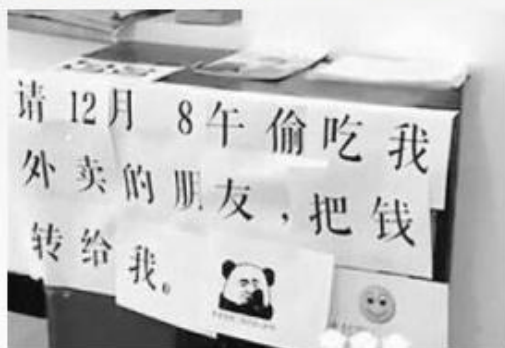 请12月 8午偷吃我
外卖的朋友，把钱
转给我。